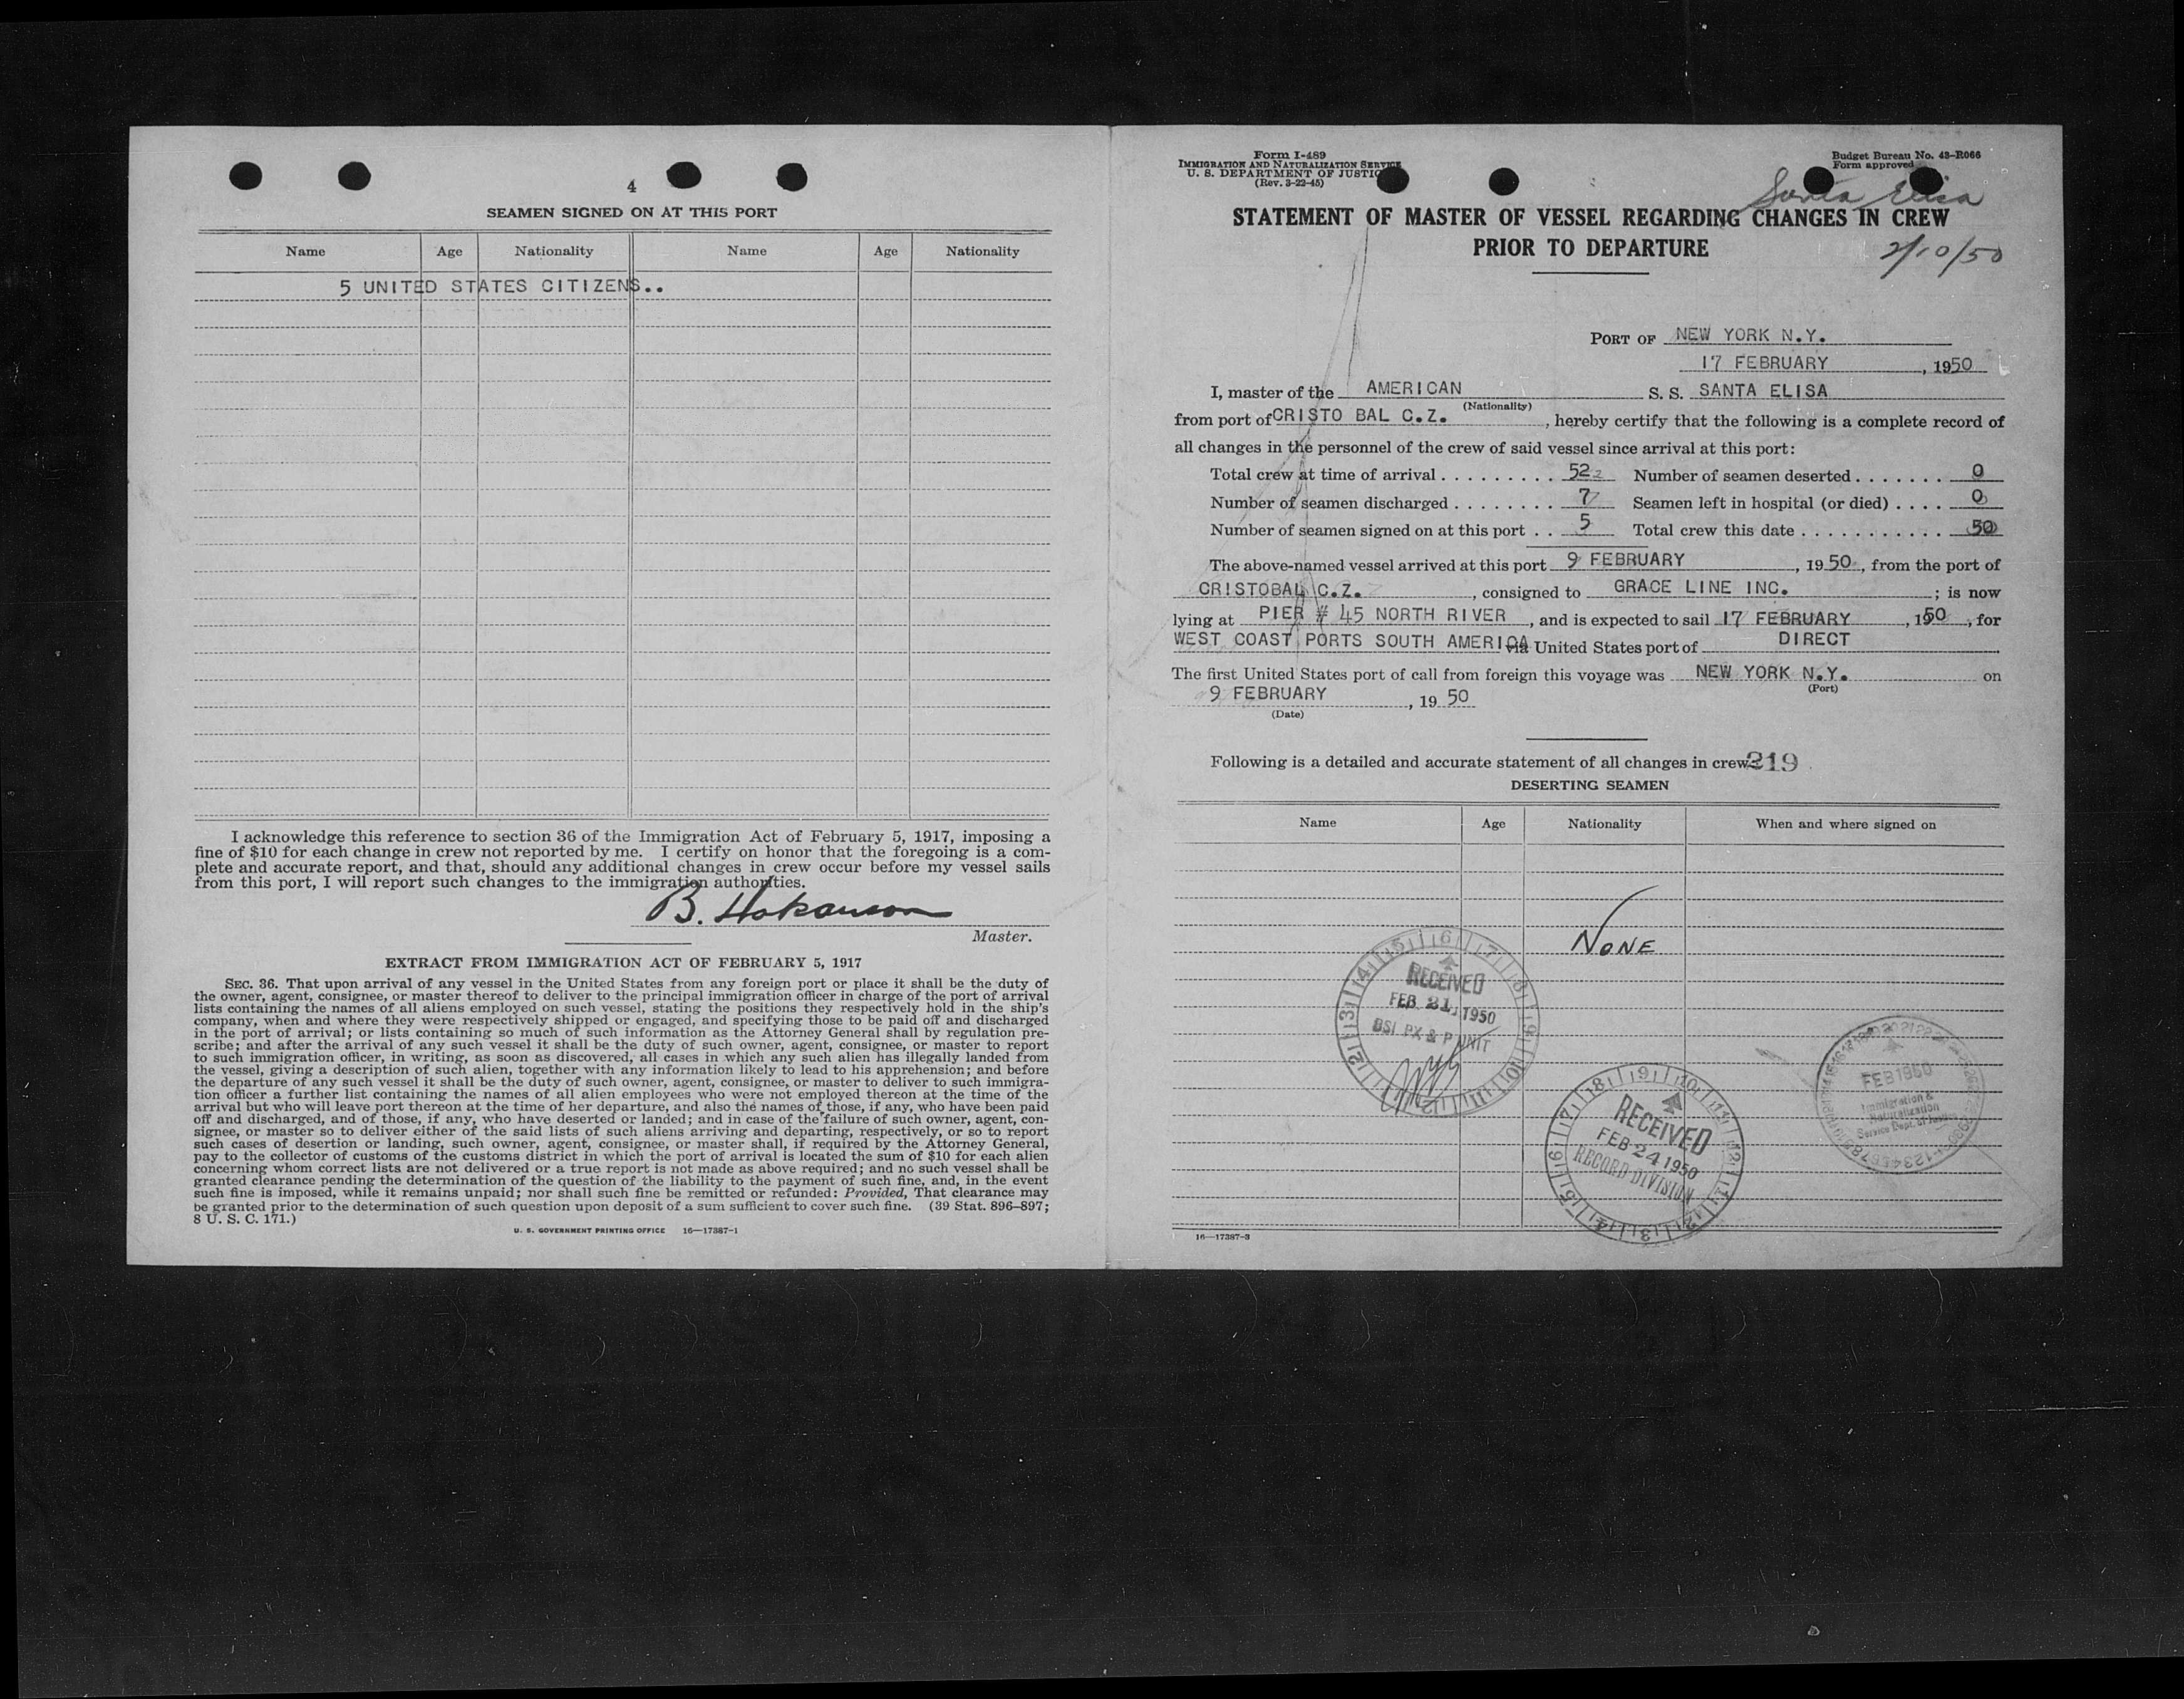 4
SEAMEN SIGNED ON AT THIS PORT
Name Age Nationality Name Age Nationality
5 UNITED STATES CITIZENS..
I acknowledge this reference to section 36 of the Immigration Act of February 5, 1917, imposing a
fine of $10 for each change in crew not reported by me. I certify on honor that the foregoing is a com-
plete and accurate report, and that, should any additional changes in crew occur before my vessel sails
from this port, I will report such changes to the immigration authorities.
B. Hokanson
Master.
EXTRACT FROM IMMIGRATION ACT OF FEBRUARY 5, 1917
SEC. 36. That upon arrival of any vessel in the United States from any foreign port or place it shall be the duty of
the owner, agent, consignee, or master thereof to deliver to the principal immigration officer in charge of the port of arrival
lists containing the names of all aliens employed on such vessel, stating the positions they respectively hold in the ship's
company, when and where they were respectively shipped or engaged, and specifying those to be paid off and discharged
in the port of arrival; or lists containing so much of such information as the Attorney General shall by regulation pre-
scribe; and after the arrival of any such vessel it shall be the duty of such owner, agent, consignee, or master to report
to such immigration officer, in writing, as soon as discovered, all cases in which any such alien has illegally landed from
the vessel, giving a description of such alien, together with any information likely to lead to his apprehension; and before
the departure of any such vessel it shall be the duty of such owner, agent, consignee, or master to deliver to such immigra-
tion officer a further list containing the names of all alien employees who were not employed thereon at the time of the
arrival but who will leave port thereon at the time of her departure, and also the names of those, if any, who have been paid
off and discharged, and of those, if any, who have deserted or landed; and in case of the failure of such owner, agent, con-
signee, or master so to deliver either of the said lists of such aliens arriving and departing, respectively, or so to report
such cases of desertion or landing, such owner, agent, consignee, or master shall, if required by the Attorney General,
pay to the collector of customs of the customs district in which the port of arrival is located the sum of $10 for each alien
concerning whom correct lists are not delivered or a true report is not made as above required; and no such vessel shall be
granted clearance pending the determination of the question of the liability to the payment of such fine, and, in the event
such fine is imposed, while it remains unpaid; nor shall such fine be remitted or refunded: Provided, That clearance may
be granted prior to the determination of such question upon deposit of a sum sufficient to cover such fine. (39 Stat. 896–897;
8 U. S. C. 171.)
U. S. GOVERNMENT PRINTING OFFICE 16—17387-1
Form I-489
IMMIGRATION AND NATURALIZATION SERVICE
U. S. DEPARTMENT OF JUSTIC
(Rev. 3-22-45)
Budget Bureau No. 43-R066
Form approved
Santa Elisa
STATEMENT OF MASTER OF VESSEL REGARDING CHANGES IN CREW
PRIOR TO DEPARTURE
2/10/50
PORT OF NEW YORK N.Y.
17 FEBRUARY, 1950
I, master of the AMERICAN S. S. SANTA ELISA
(Nationality)
from port of CRISTO BAL C.Z., hereby certify that the following is a complete record of
all changes in the personnel of the crew of said vessel since arrival at this port:
Total crew at time of arrival . . . . . . . . . 52 Number of seamen deserted . . . . . . . 0
Number of seamen discharged . . . . . . . . 7 Seamen left in hospital (or died) . . . . 0
Number of seamen signed on at this port . . 5 Total crew this date . . . . . . . . . . . 50
The above-named vessel arrived at this port 9 FEBRUARY, 1950, from the port of
CRISTOBAL C.Z., consigned to GRACE LINE INC.; is now
lying at PIER # 45 NORTH RIVER, and is expected to sail 17 FEBRUARY, 1950, for
WEST COAST PORTS SOUTH AMERICA via United States port of DIRECT
The first United States port of call from foreign this voyage was NEW YORK N.Y. on
(Port)
9 FEBRUARY, 19 50
(Date)
Following is a detailed and accurate statement of all changes in crew: 219
DESERTING SEAMEN
Name Age Nationality When and where signed on
NONE
RECEIVED
FEB 21 1950
BSI PX & P UNIT
RECEIVED
FEB 24 1950
RECORD DIVISION
FEB 1950
Immigration &
Naturalization
Service Dept. of Justice
16—17387-3